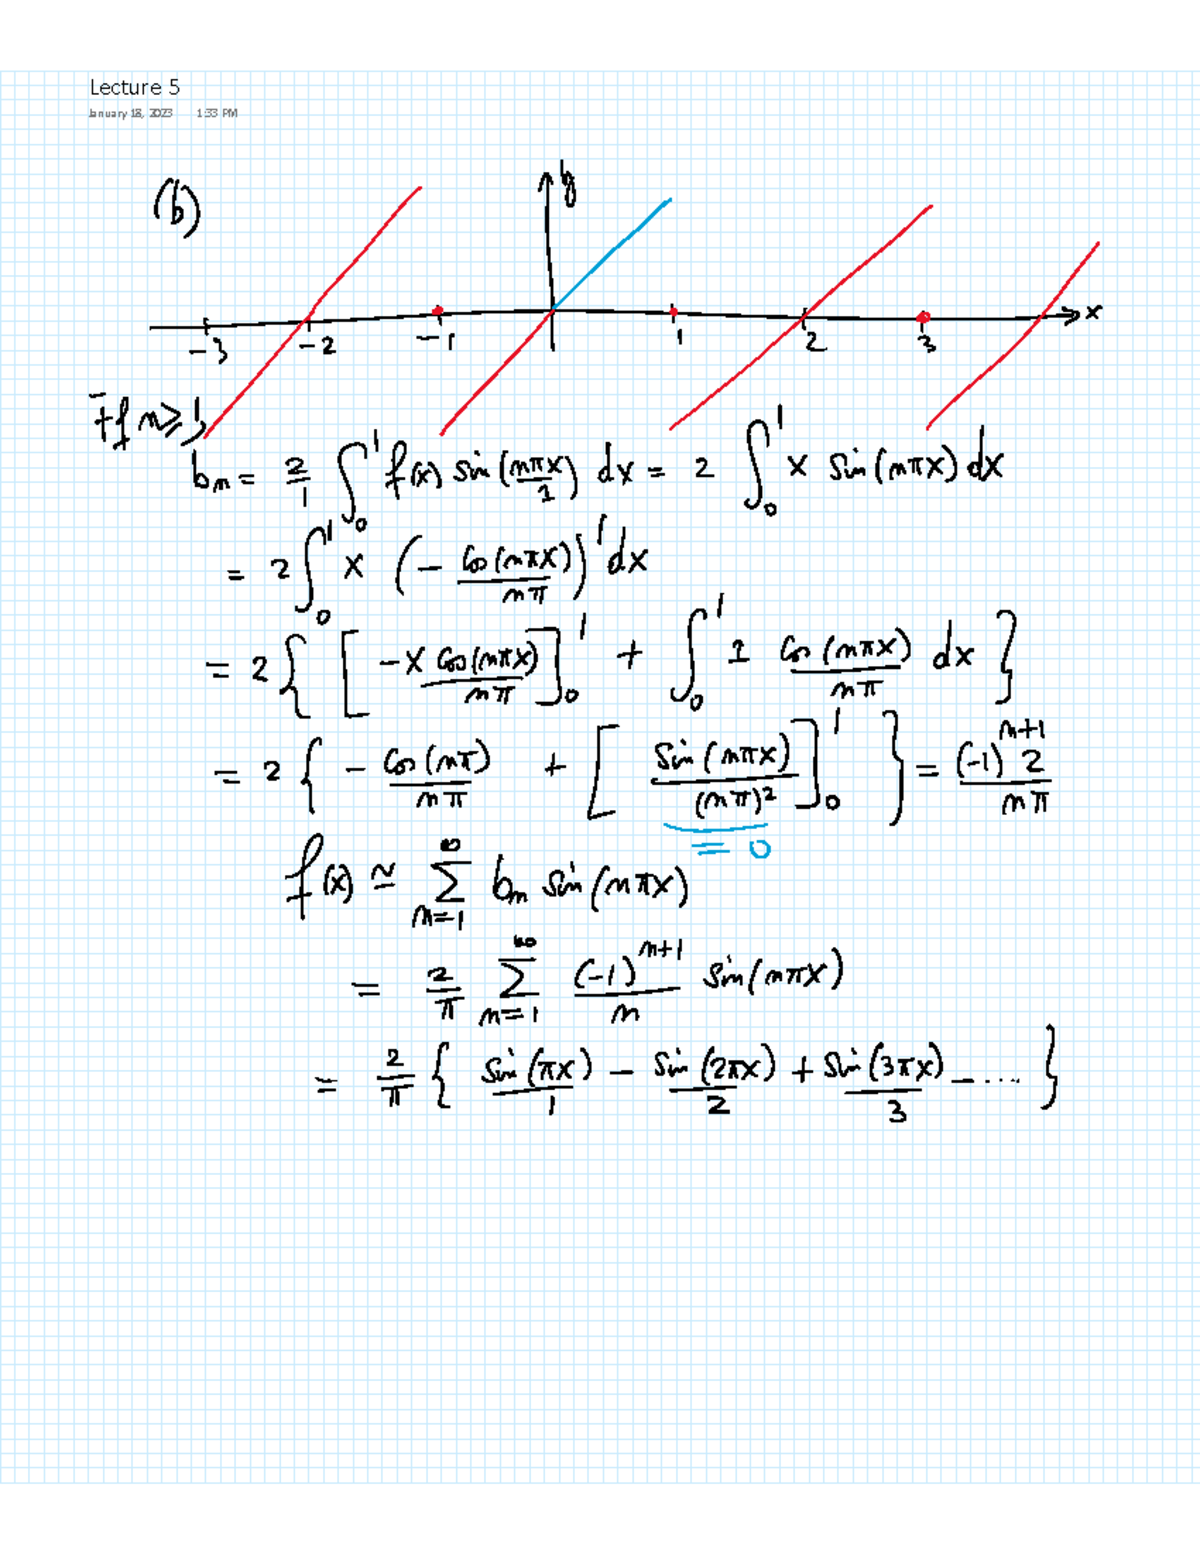 Lecture 5
January 18, 2023 1:33 PM
(b)
y
x
-3 -2 -1 1 2 3
If n ≥ 1,
bn = 2/1 ∫₀¹ f(x) sin(nπx/1) dx = 2 ∫₀¹ x sin(nπx) dx
= 2 ∫₀¹ x (- Cos(nπx)/nπ)' dx
= 2 { [ -x Cos(nπx)/nπ ]₀¹ + ∫₀¹ 1 Cos(nπx)/nπ dx }
= 2 { - Cos(nπ)/nπ + [ Sin(nπx)/(nπ)² ]₀¹ } = (-1)ⁿ⁺¹ 2/nπ
= 0
f(x) ≃ ∑ₙ₌₁^∞ bn sin(nπx)
= 2/π ∑ₙ₌₁^∞ (-1)ⁿ⁺¹/n sin(nπx)
= 2/π { sin(πx)/1 - sin(2πx)/2 + sin(3πx)/3 - .... }